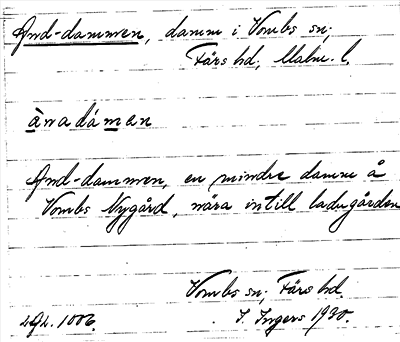 And-dammen, damm i Vombs sn;
Färs hd, Malm. l.
ànadámen
And-dammen, en mindre damm å
Vombs Nygård, nära intill ladugården
Vombs sn; Färs hd.
I. Ingers 1930.